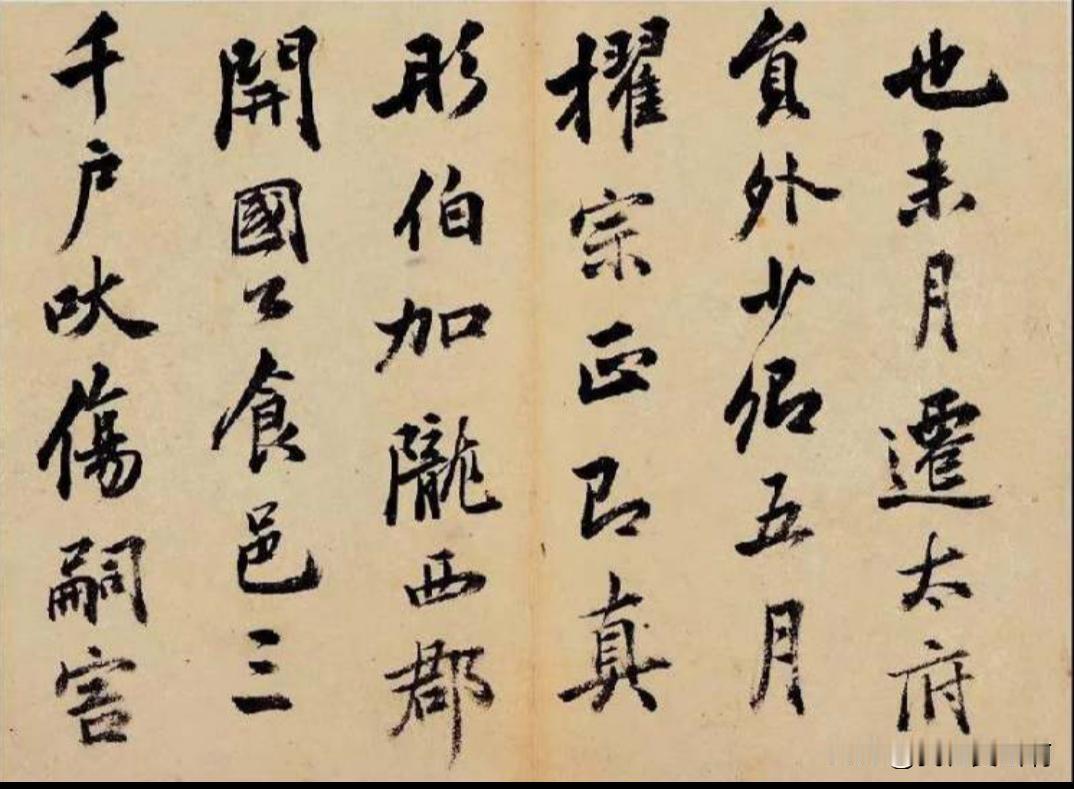 也未月遷太府
員外少卿五月
擢宗正即真
彤伯加隴西郡
開國公食邑三
千户吠傷嗣害